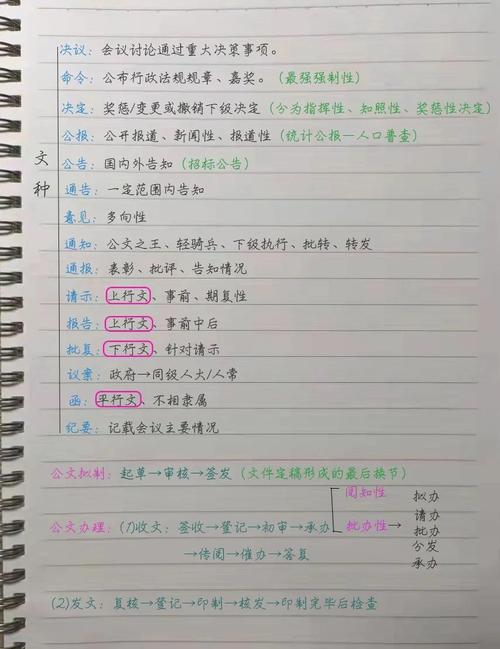 文种
决议：会议讨论通过重大决策事项。
命令：公布行政法规规章、嘉奖。（最强强制性）
决定：奖惩/变更或撤销下级决定（分为指挥性、知照性、奖惩性决定）
公报：公开报道、新闻性、报道性（统计公报—人口普查）
公告：国内外告知（招标公告）
通告：一定范围内告知
意见：多向性
通知：公文之王、轻骑兵、下级执行、批转、转发
通报：表彰、批评、告知情况
请示：上行文、事前、期复性
报告：上行文、事前中后
批复：下行文、针对请示
议案：政府→同级人大/人常
函：平行文、不相隶属
纪要：记载会议主要情况
公文拟制：起草→审核→签发（文件定稿形成的最后换节）
公文办理：(1)收文：签收→登记→初审→承办
阅知性
批办性→
拟办
请办
批办
分发
承办
→传阅→催办→答复
(2)发文：复核→登记→印制→核发→印制完毕后检查